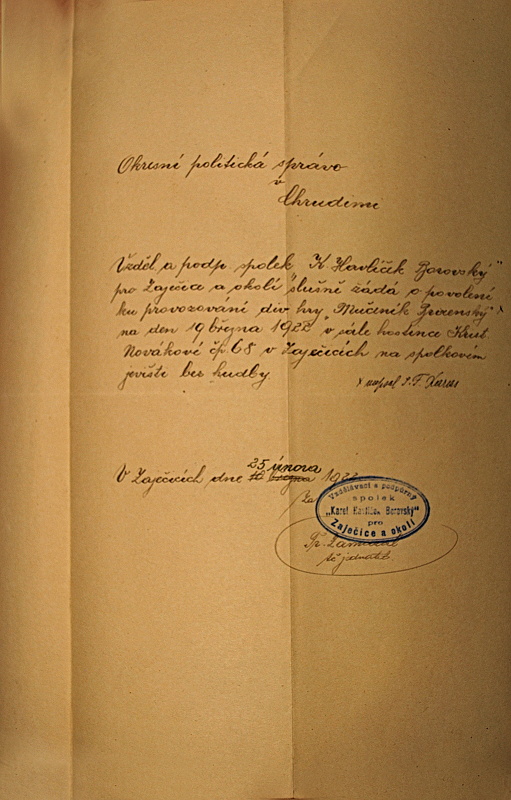 Okresní politická správo
v
Chrudimi
Vzděl. a podp. spolek "K. Havlíček Borovský"
pro Zaječice a okolí slušně žádá o povolení
ku provozování div. hry "Mučeník Brixenský" x
na den 19 března 1922 v sále hostince Krist.
Novákové čp. 68 v Zaječicích na spolkovém
jevišti bez hudby.
x napsal J. F.
V Zaječicích dne 25 února 192
Za
Vzdělávací a podpůrný
spolek
„Karel Havlíček Borovský"
pro
Zaječice a okolí
Fr.
tč. jednatel.